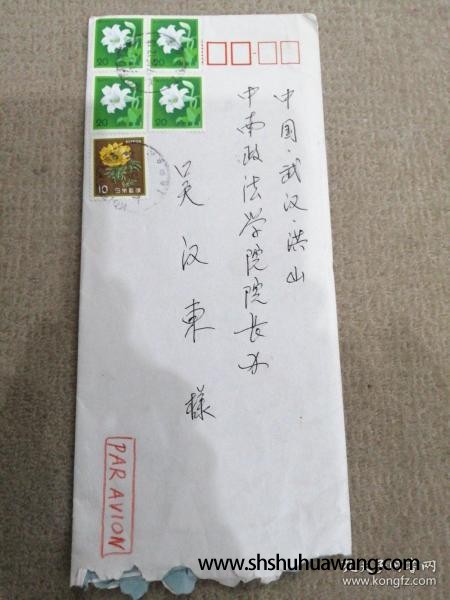 20
20
20
20
NIPPON
10
日本郵便
中国·武汉·洪山
中南政法学院院长办
吴汉東様
PAR AVION
www.shshuhuawang.com
www.kongfz.com